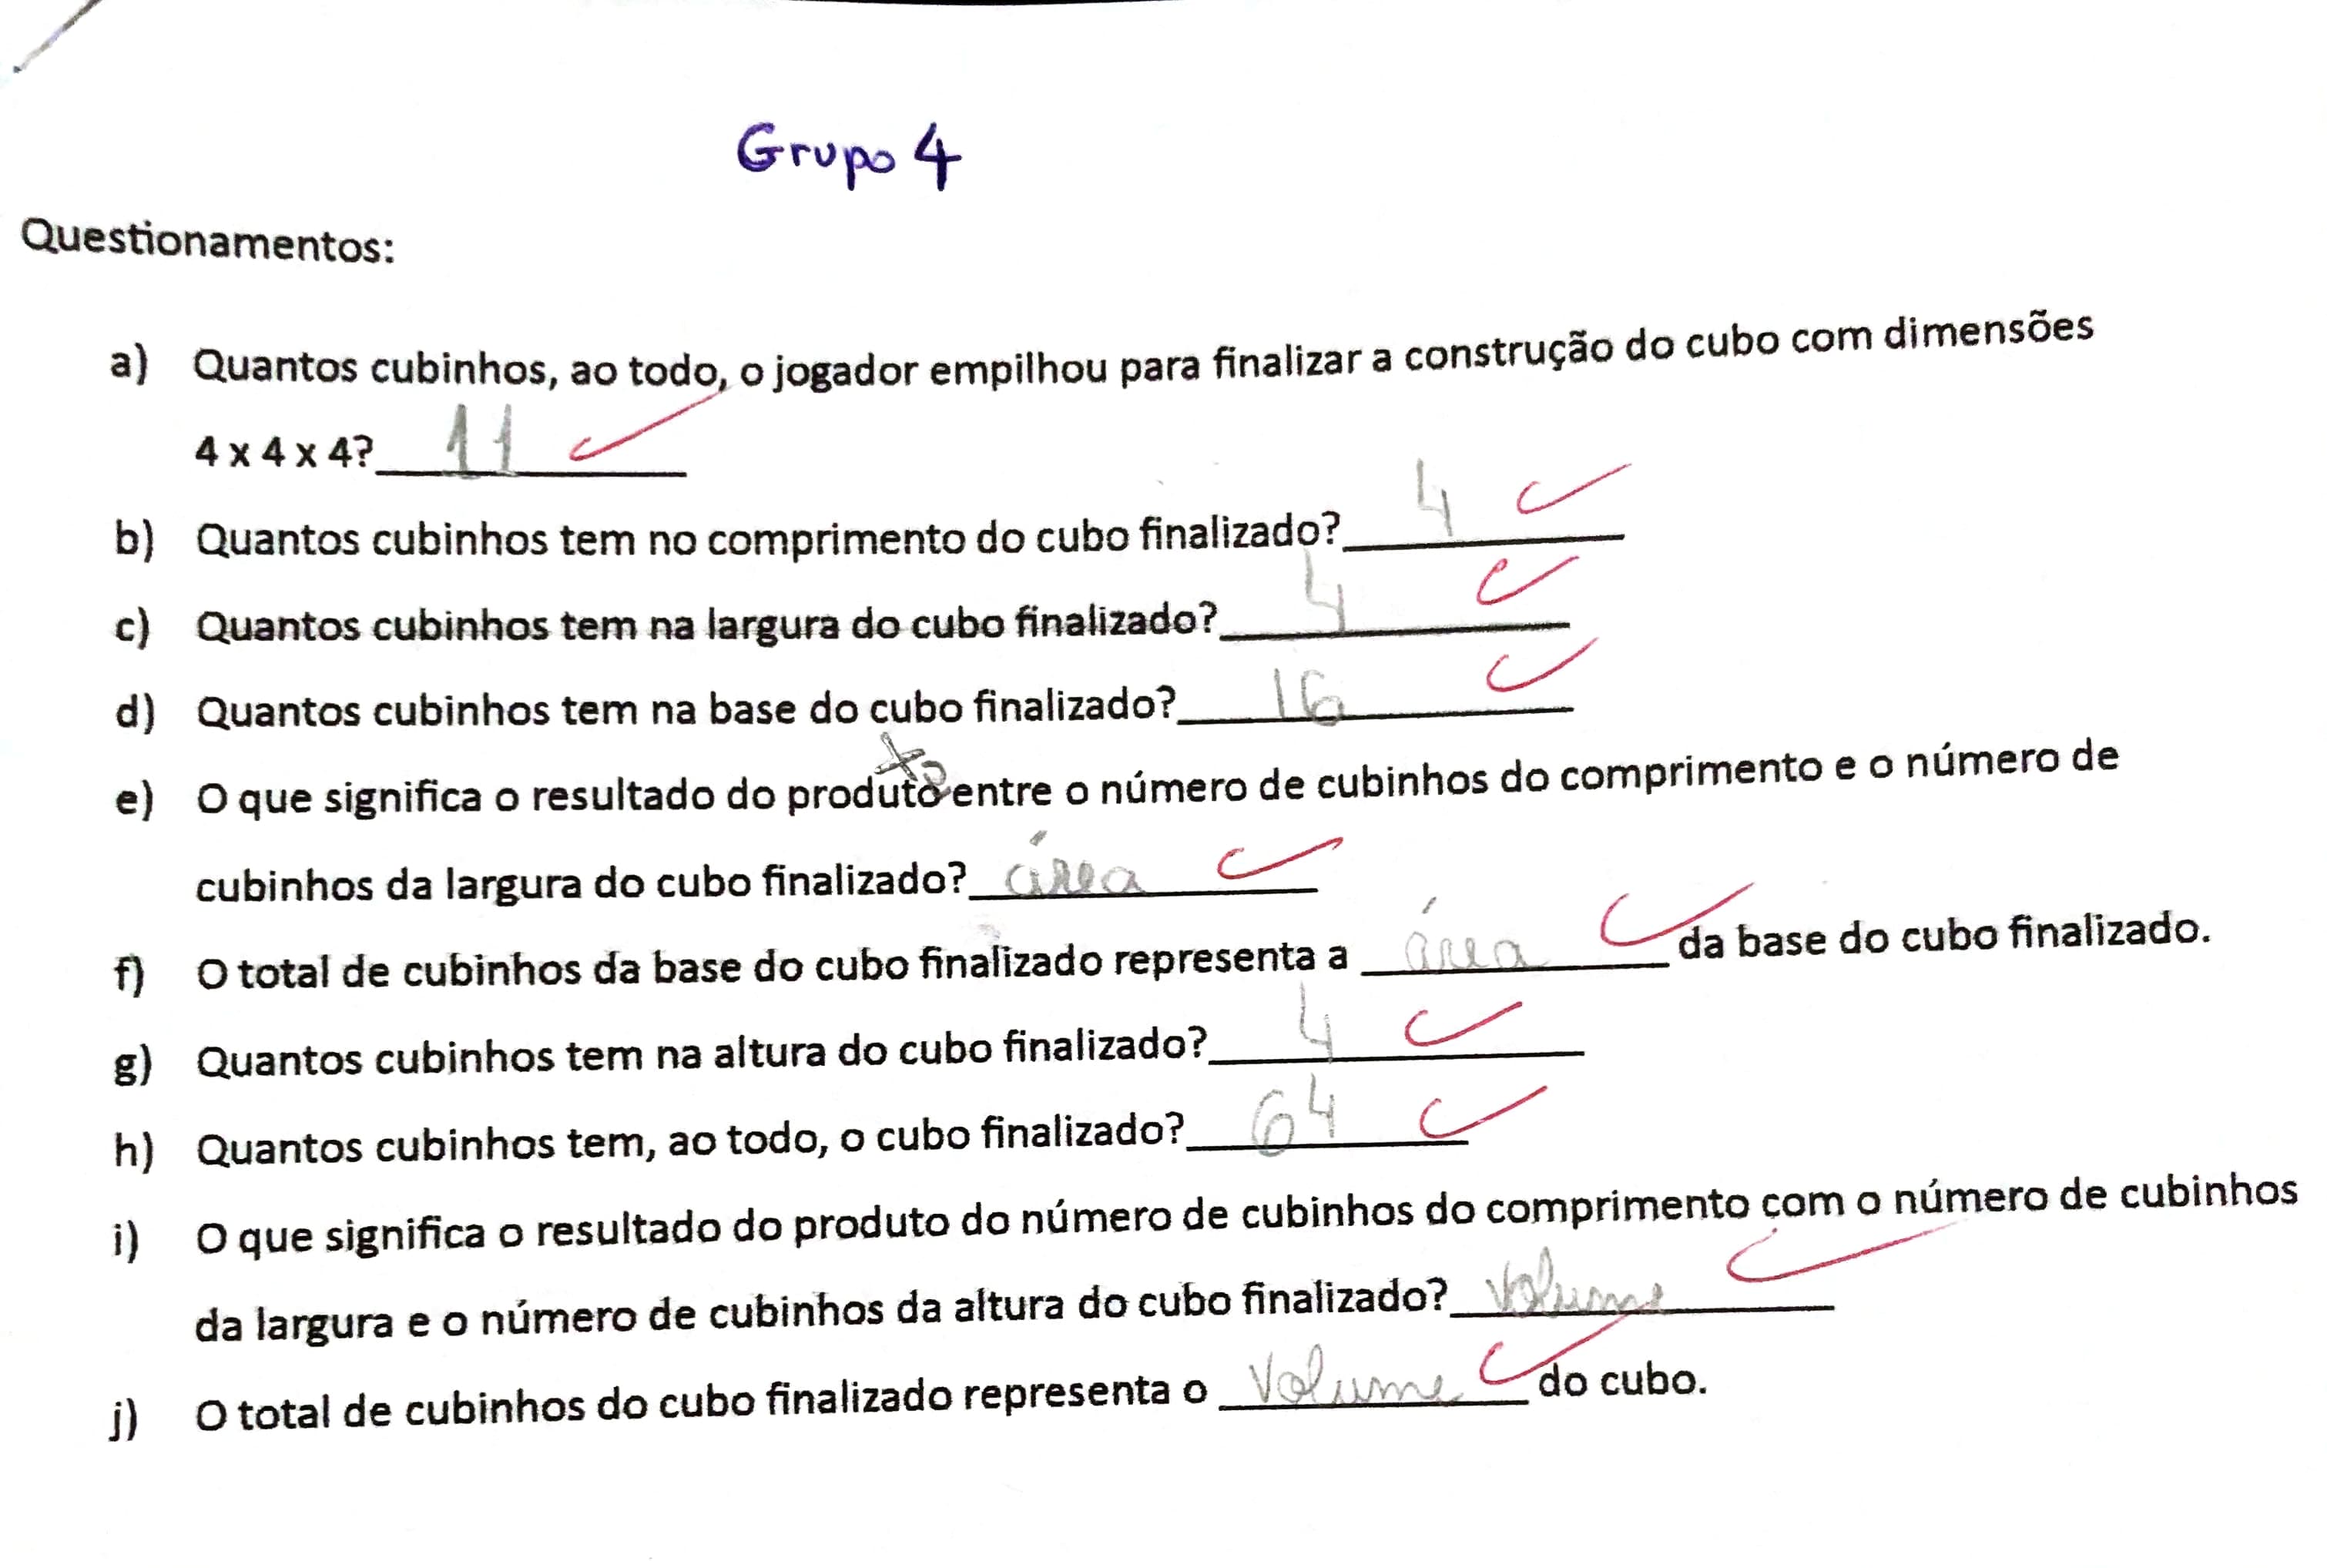 Grupo 4
Questionamentos:
a) Quantos cubinhos, ao todo, o jogador empilhou para finalizar a construção do cubo com dimensões
4 x 4 x 4? 11
b) Quantos cubinhos tem no comprimento do cubo finalizado? 4
c) Quantos cubinhos tem na largura do cubo finalizado? 4
d) Quantos cubinhos tem na base do cubo finalizado? 16
e) O que significa o resultado do produto entre o número de cubinhos do comprimento e o número de
cubinhos da largura do cubo finalizado? área
f) O total de cubinhos da base do cubo finalizado representa a área da base do cubo finalizado.
g) Quantos cubinhos tem na altura do cubo finalizado? 4
h) Quantos cubinhos tem, ao todo, o cubo finalizado? 64
i) O que significa o resultado do produto do número de cubinhos do comprimento com o número de cubinhos
da largura e o número de cubinhos da altura do cubo finalizado? Volume
j) O total de cubinhos do cubo finalizado representa o Volume do cubo.